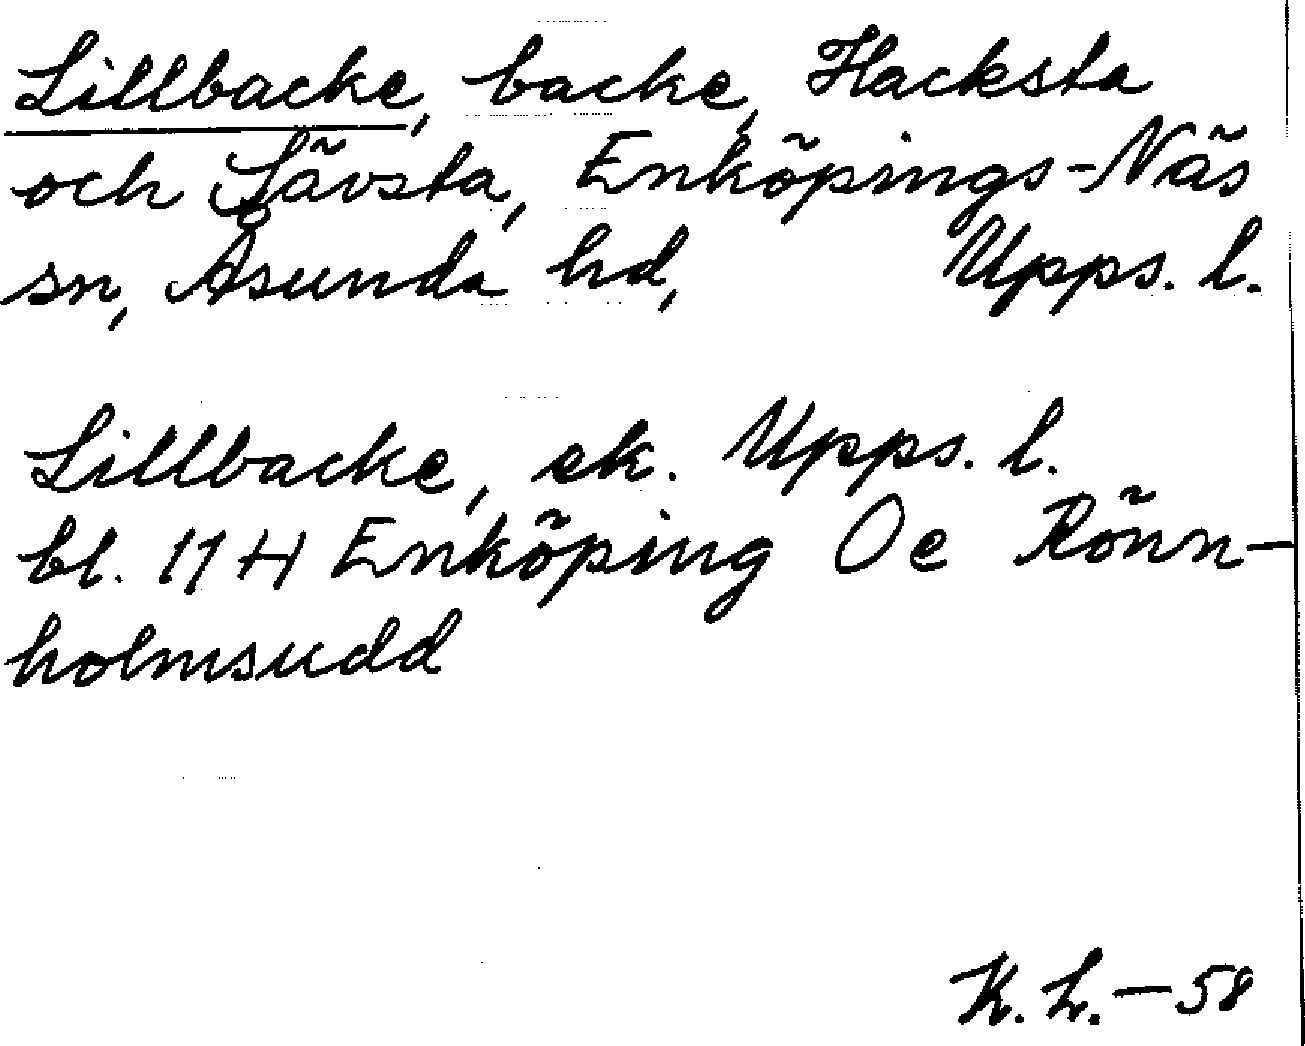 Lillbacke, backe, Hacksta
och Sävsta, Enköpings-Näs
sn, Åsunda hd, Upps. l.
Lillbacke, ek. Upps. l.
bl. 11 H Enköping Oe Rönn-
holmsudd
K. L. - 58